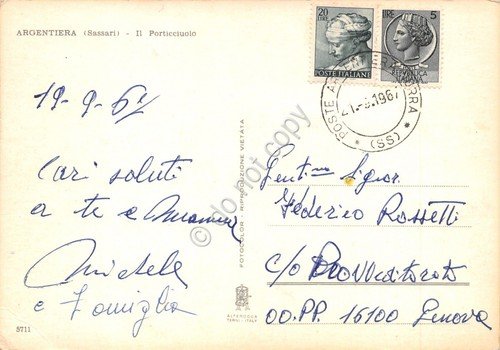 ARGENTIERA (Sassari) - Il Porticciuolo
19-9-67
Cari saluti
a te e
Michele
e Famiglia
5711
FOTOCOLOR - RIPRODUZIONE VIETATA
ALTEROCCA
TERNI - ITALY
20
LIRE
POSTE ITALIANE
LIRE 5
POSTE
21.-9.1967
* (SS) *
Gent.mo Signor
Federico Rossetti
c/o Provveditorato
OO.PP. 16100 Genova
do not copy